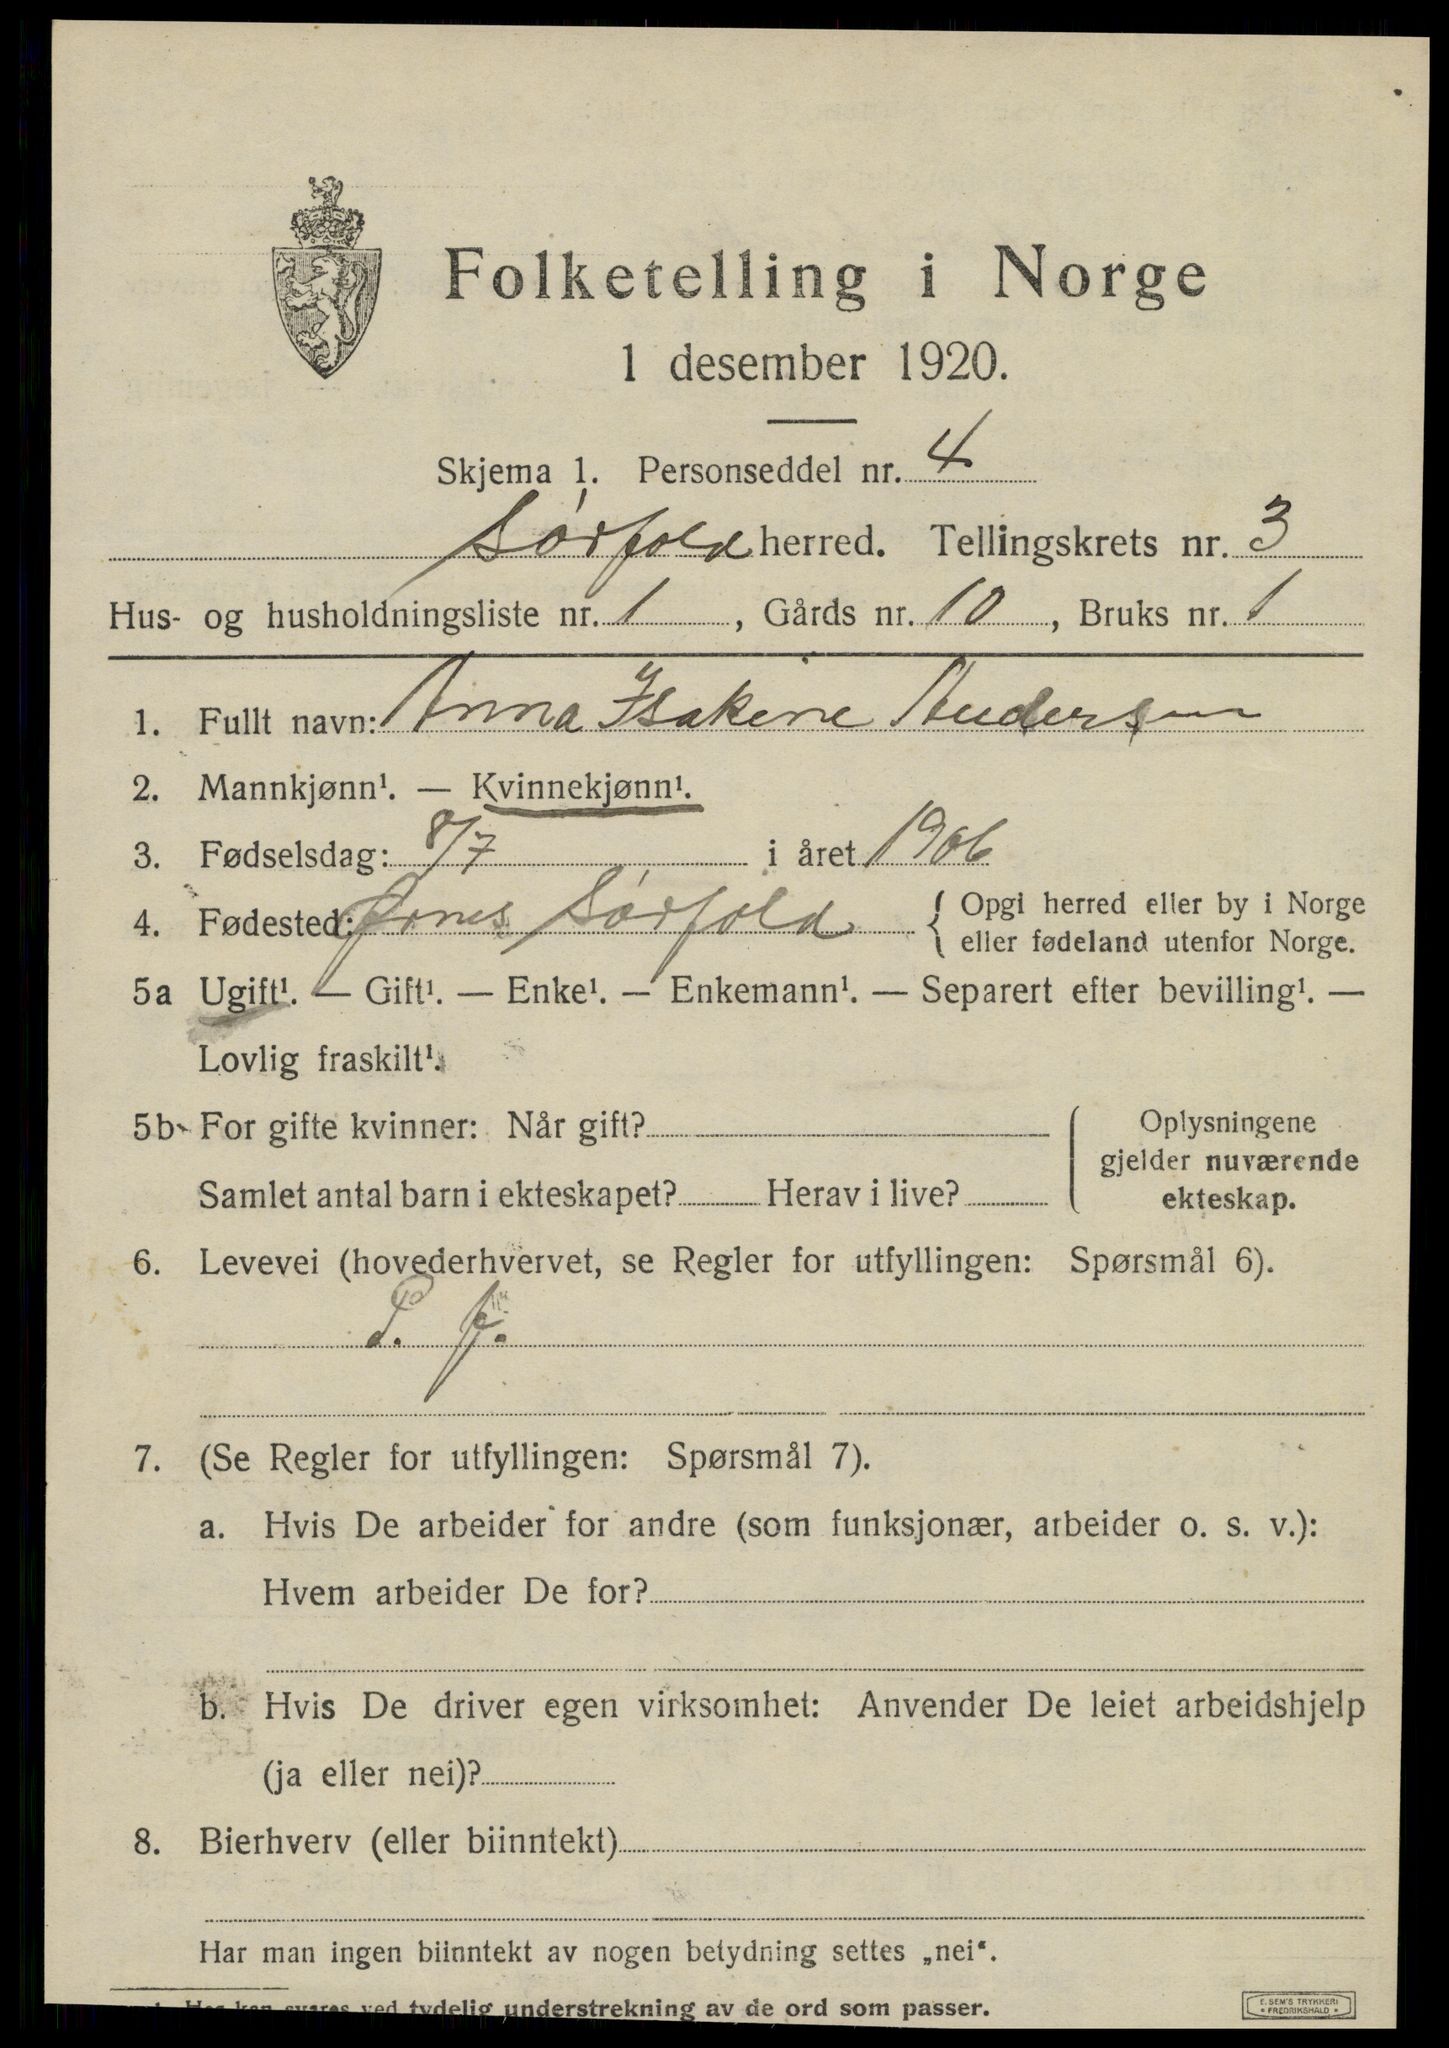 Folketelling i Norge
1 desember 1920.
Skjema 1. Personseddel nr. 4
Sørfold herred. Tellingskrets nr. 3
Hus- og husholdningsliste nr. 1, Gårds nr. 10, Bruks nr. 1
1. Fullt navn: Anna Isakine Andersen
2. Mannkjønn¹. — Kvinnekjønn¹.
3. Fødselsdag: 8/7 i året 1906
4. Fødested: Ørnes Sørfold { Opgi herred eller by i Norge
eller fødeland utenfor Norge.
5a Ugift¹. — Gift¹. — Enke¹. — Enkemann¹. — Separert efter bevilling¹. —
Lovlig fraskilt¹.
5b For gifte kvinner: Når gift?
Samlet antal barn i ekteskapet? Herav i live?
Oplysningene
gjelder nuværende
ekteskap.
6. Levevei (hovederhvervet, se Regler for utfyllingen: Spørsmål 6).
P. f.
7. (Se Regler for utfyllingen: Spørsmål 7).
a. Hvis De arbeider for andre (som funksjonær, arbeider o. s. v.):
Hvem arbeider De for?
b. Hvis De driver egen virksomhet: Anvender De leiet arbeidshjelp
(ja eller nei)?
8. Bierhverv (eller biinntekt)
Har man ingen biinntekt av nogen betydning settes „nei“.
Her kan svares ved tydelig understrekning av de ord som passer.
E. SEM'S TRYKKERI
• FREDRIKSHALD •